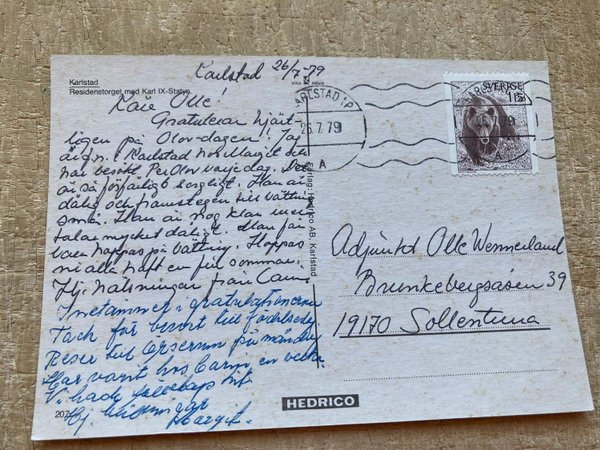 Karlstad
Residenstorget med Karl IX-Statyn
Karlstad 26/7-79
Käre Olle!
Gratulerar hjärt-
ligen på Olov-dagen! Jag
är n. i Karlstad
har besökt Per Olov varje dag. Det
är så förfärligt sorgligt. Han är
dålig och framstegen till bättring
små. Han är nog klar men
talar mycket dåligt. Man får
bara hoppas på bättring. Hoppas
ni alla haft en fin sommar.
Hj. hälsningar från
Instämmer i gratulationerna
Tack för besöket till födelsed
Reser till på måndag
Har varit hos en vecka.
Vi hade
Hj. hälsningar
Margit.
Förlag: Hedrico AB, Karlstad
KARLSTAD 1 P
26.7.79
A
SVERIGE
115
Adjunkt Olle Wennerland
Brunkebergsåsen 39
19170 Sollentuna
HEDRICO
207